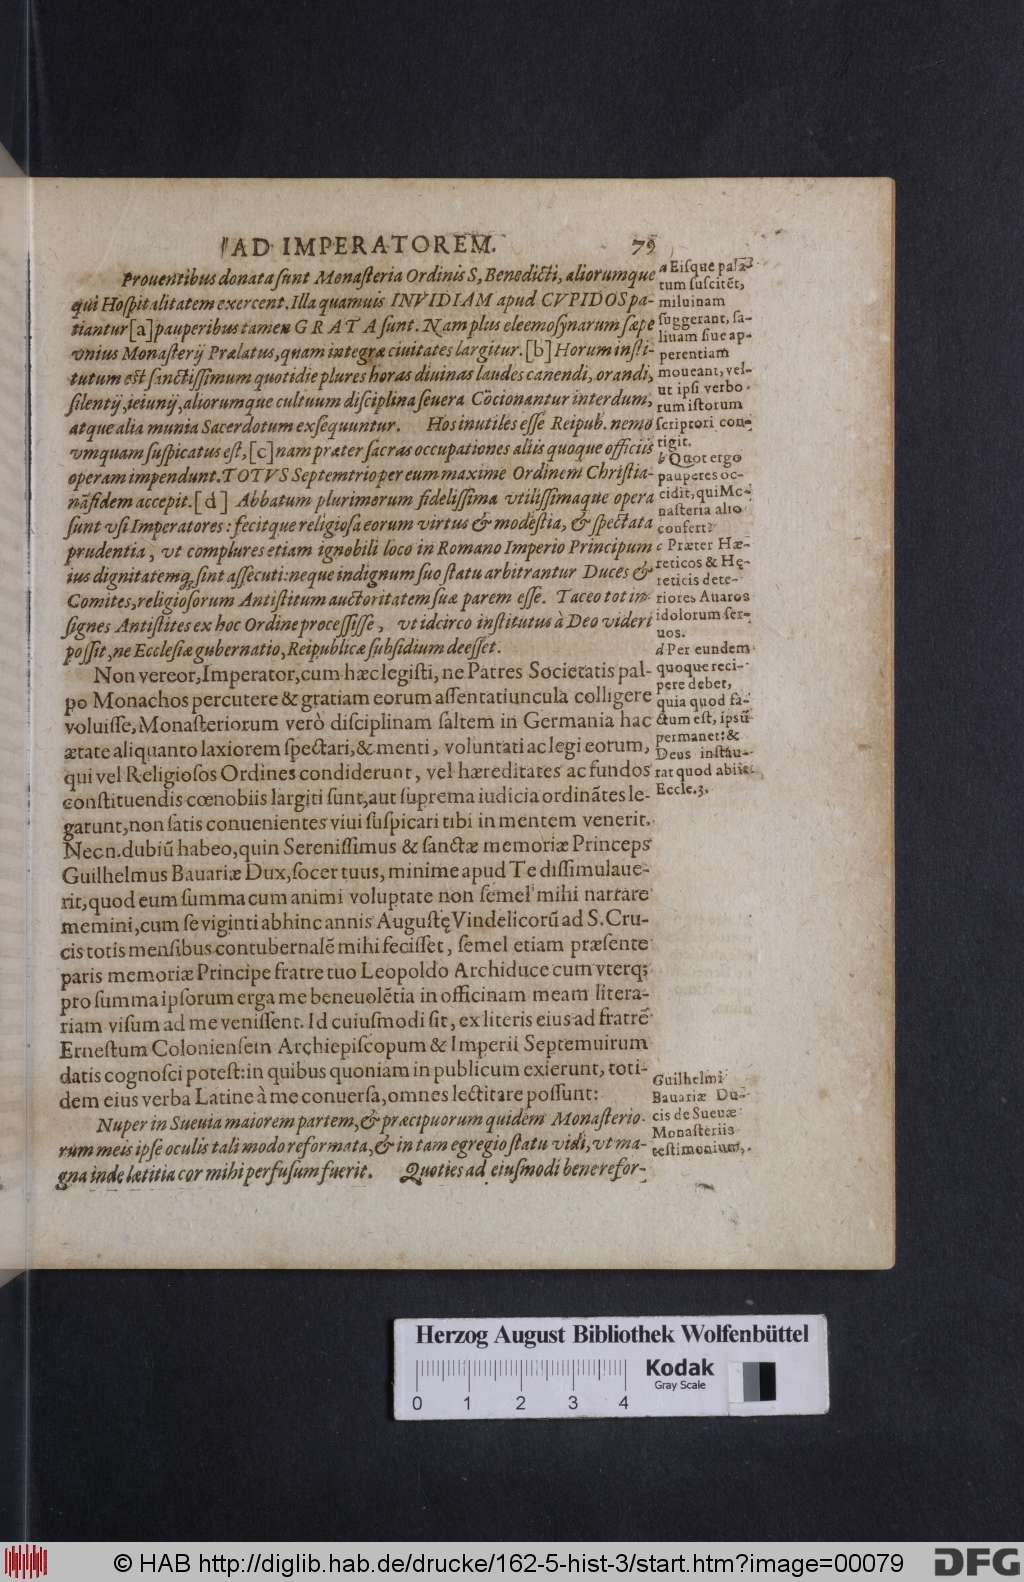 AD IMPERATOREM. 79
Prouentibus donata sunt Monasteria Ordinis S, Benedicti, aliorumque
qui Hospitalitatem exercent. Illa quamuis INVIDIAM apud CVPIDOS pa-
tiantur [a] pauperibus tamen GRATA sunt. Nam plus eleemosynarum sæpe
vnius Monasterij Prælatus, quam integræ ciuitates largitur. [b] Horum insti-
tutum est sanctissimum quotidie plures horas diuinas laudes canendi, orandi,
silentij, ieiunij, aliorumque cultuum disciplina seuera Cōcionantur interdum,
atque alia munia Sacerdotum exsequuntur. Hos inutiles esse Reipub. nemo
vmquam suspicatus est, [c] nam præter sacras occupationes aliis quoque officiis
operam impendunt. TOTVS Septemtrio per eum maxime Ordinem Christia-
nā fidem accepit. [d] Abbatum plurimorum fidelissima vtilissimaque opera
sunt vsi Imperatores: fecitque religiosa eorum virtus & modestia, & spectata
prudentia, vt complures etiam ignobili loco in Romano Imperio Principum
ius dignitatemq́ sint assecuti: neque indignum suo statu arbitrantur Duces &
Comites, religiosorum Antistitum auctoritatem suæ parem esse. Taceo tot in-
signes Antistites ex hoc Ordine processisse, vt idcirco institutus à Deo videri
possit, ne Ecclesiæ gubernatio, Reipublicæ subsidium deesset.
Non vereor, Imperator, cum hæc legisti, ne Patres Societatis pal-
po Monachos percutere & gratiam eorum assentatiuncula colligere
voluisse, Monasteriorum verò disciplinam saltem in Germania hac
ætate aliquanto laxiorem spectari, & menti, voluntati ac legi eorum,
qui vel Religiosos Ordines condiderunt, vel hæreditates ac fundos
constituendis cœnobiis largiti sunt, aut suprema iudicia ordinātes le-
garunt, non satis conuenientes viui suspicari tibi in mentem venerit.
Necn. dubiū habeo, quin Serenissimus & sanctæ memoriæ Princeps
Guilhelmus Bauariæ Dux, socer tuus, minime apud Te dissimulaue-
rit, quod eum summa cum animi voluptate non semel mihi narrare
memini, cum se viginti abhinc annis Augustę Vindelicorū ad S. Cru-
cis totis mensibus contubernalē mihi fecisset, semel etiam præsente
paris memoriæ Principe fratre tuo Leopoldo Archiduce cum vterq;
pro summa ipsorum erga me beneuolētia in officinam meam litera-
riam visum ad me venissent. Id cuiusmodi sit, ex literis eius ad fratrē
Ernestum Coloniensem Archiepiscopum & Imperii Septemuirum
datis cognosci potest: in quibus quoniam in publicum exierunt, toti-
dem eius verba Latine à me conuersa, omnes lectitare possunt:
Nuper in Sueuia maiorem partem, & præcipuorum quidem Monasterio-
rum meis ipse oculis tali modo reformata, & in tam egregio statu vidi, vt ma-
gna indę lætitia cor mihi perfusum fuerit. Quoties ad eiusmodi bene refor-
a Eisque pala-
tum suscitēt,
miluinam
suggerant, sa-
liuam siue ap-
perentiam
moueant, vel-
ut ipsi verbo-
rum istorum
scriptori con-
tigit.
b Quot ergo
pauperes oc-
cidit, qui Mo-
nasteria alio
confert?
c Præter Hæ-
reticos & Hę-
reticis dete-
riores Auaros
idolorum ser-
uos.
d Per eundem
quoque reci-
pere debet,
quia quod fa-
ctum est, ipsū
permanet: &
Deus instau-
rat quod abiit.
Eccle. 3.
Guilhelmi
Bauariæ Du-
cis de Sueuæ
Monasteriis
testimonium,.
Herzog August Bibliothek Wolfenbüttel
Kodak
Gray Scale
0 1 2 3 4
© HAB http://diglib.hab.de/drucke/162-5-hist-3/start.htm?image=00079
DFG